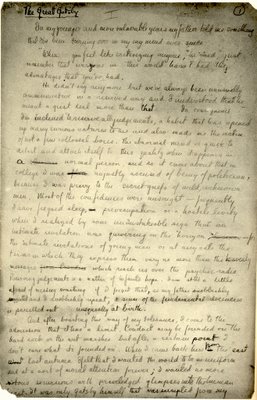 The Great Gatsby
1
In my younger and more vulnerable years my father told me something
that I've been turning over in my mind ever since.
When you feel like criticizing anyone, he said, just
remember that everyone in this world hasn't had the
advantages that you've had.
He didn't say any more but we've always been unusually
communicative in a reserved way and I understood that he
meant a great deal more than that. In consequence
I'm inclined to reserve all judgements, a habit that has opened
up many curious natures to me and also made me the victim
of not a few bores. The abnormal mind is quick to
detect and attach itself to this quality when it appears in
a normal person and so it came about that in
college I was unjustly accused of being a politician,
because I was privy to the secret griefs of wild, unknown
men. Most of the confidences were unsought — frequently
I have feigned sleep, preoccupation or a hostile levity
when I realized by some unmistakable sign that an
intimate revelation was quivering on the horizon
the intimate revelations of young men or at any rate the
terms in which they express them
Reserving judgements is a matter of infinite hope. I am still a little
afraid of missing something if I forget that, as my father snobbishly
and I snobbishly repeat, a sense of the fundamental decencies
is parcelled out unequally at birth.
And after boasting this way of my tolerance, I come to the
admission that it has a limit. Conduct may be founded on the
hard rock or the wet marshes but after a certain point I
don't care what it's founded on. When I came back from the east
last autumn I felt that I wanted the world to be in uniform
and at a sort of moral attention forever; I wanted no more
riotous excursions with privileged glimpses into the human
heart. It was only Gatsby himself that was exempted from my